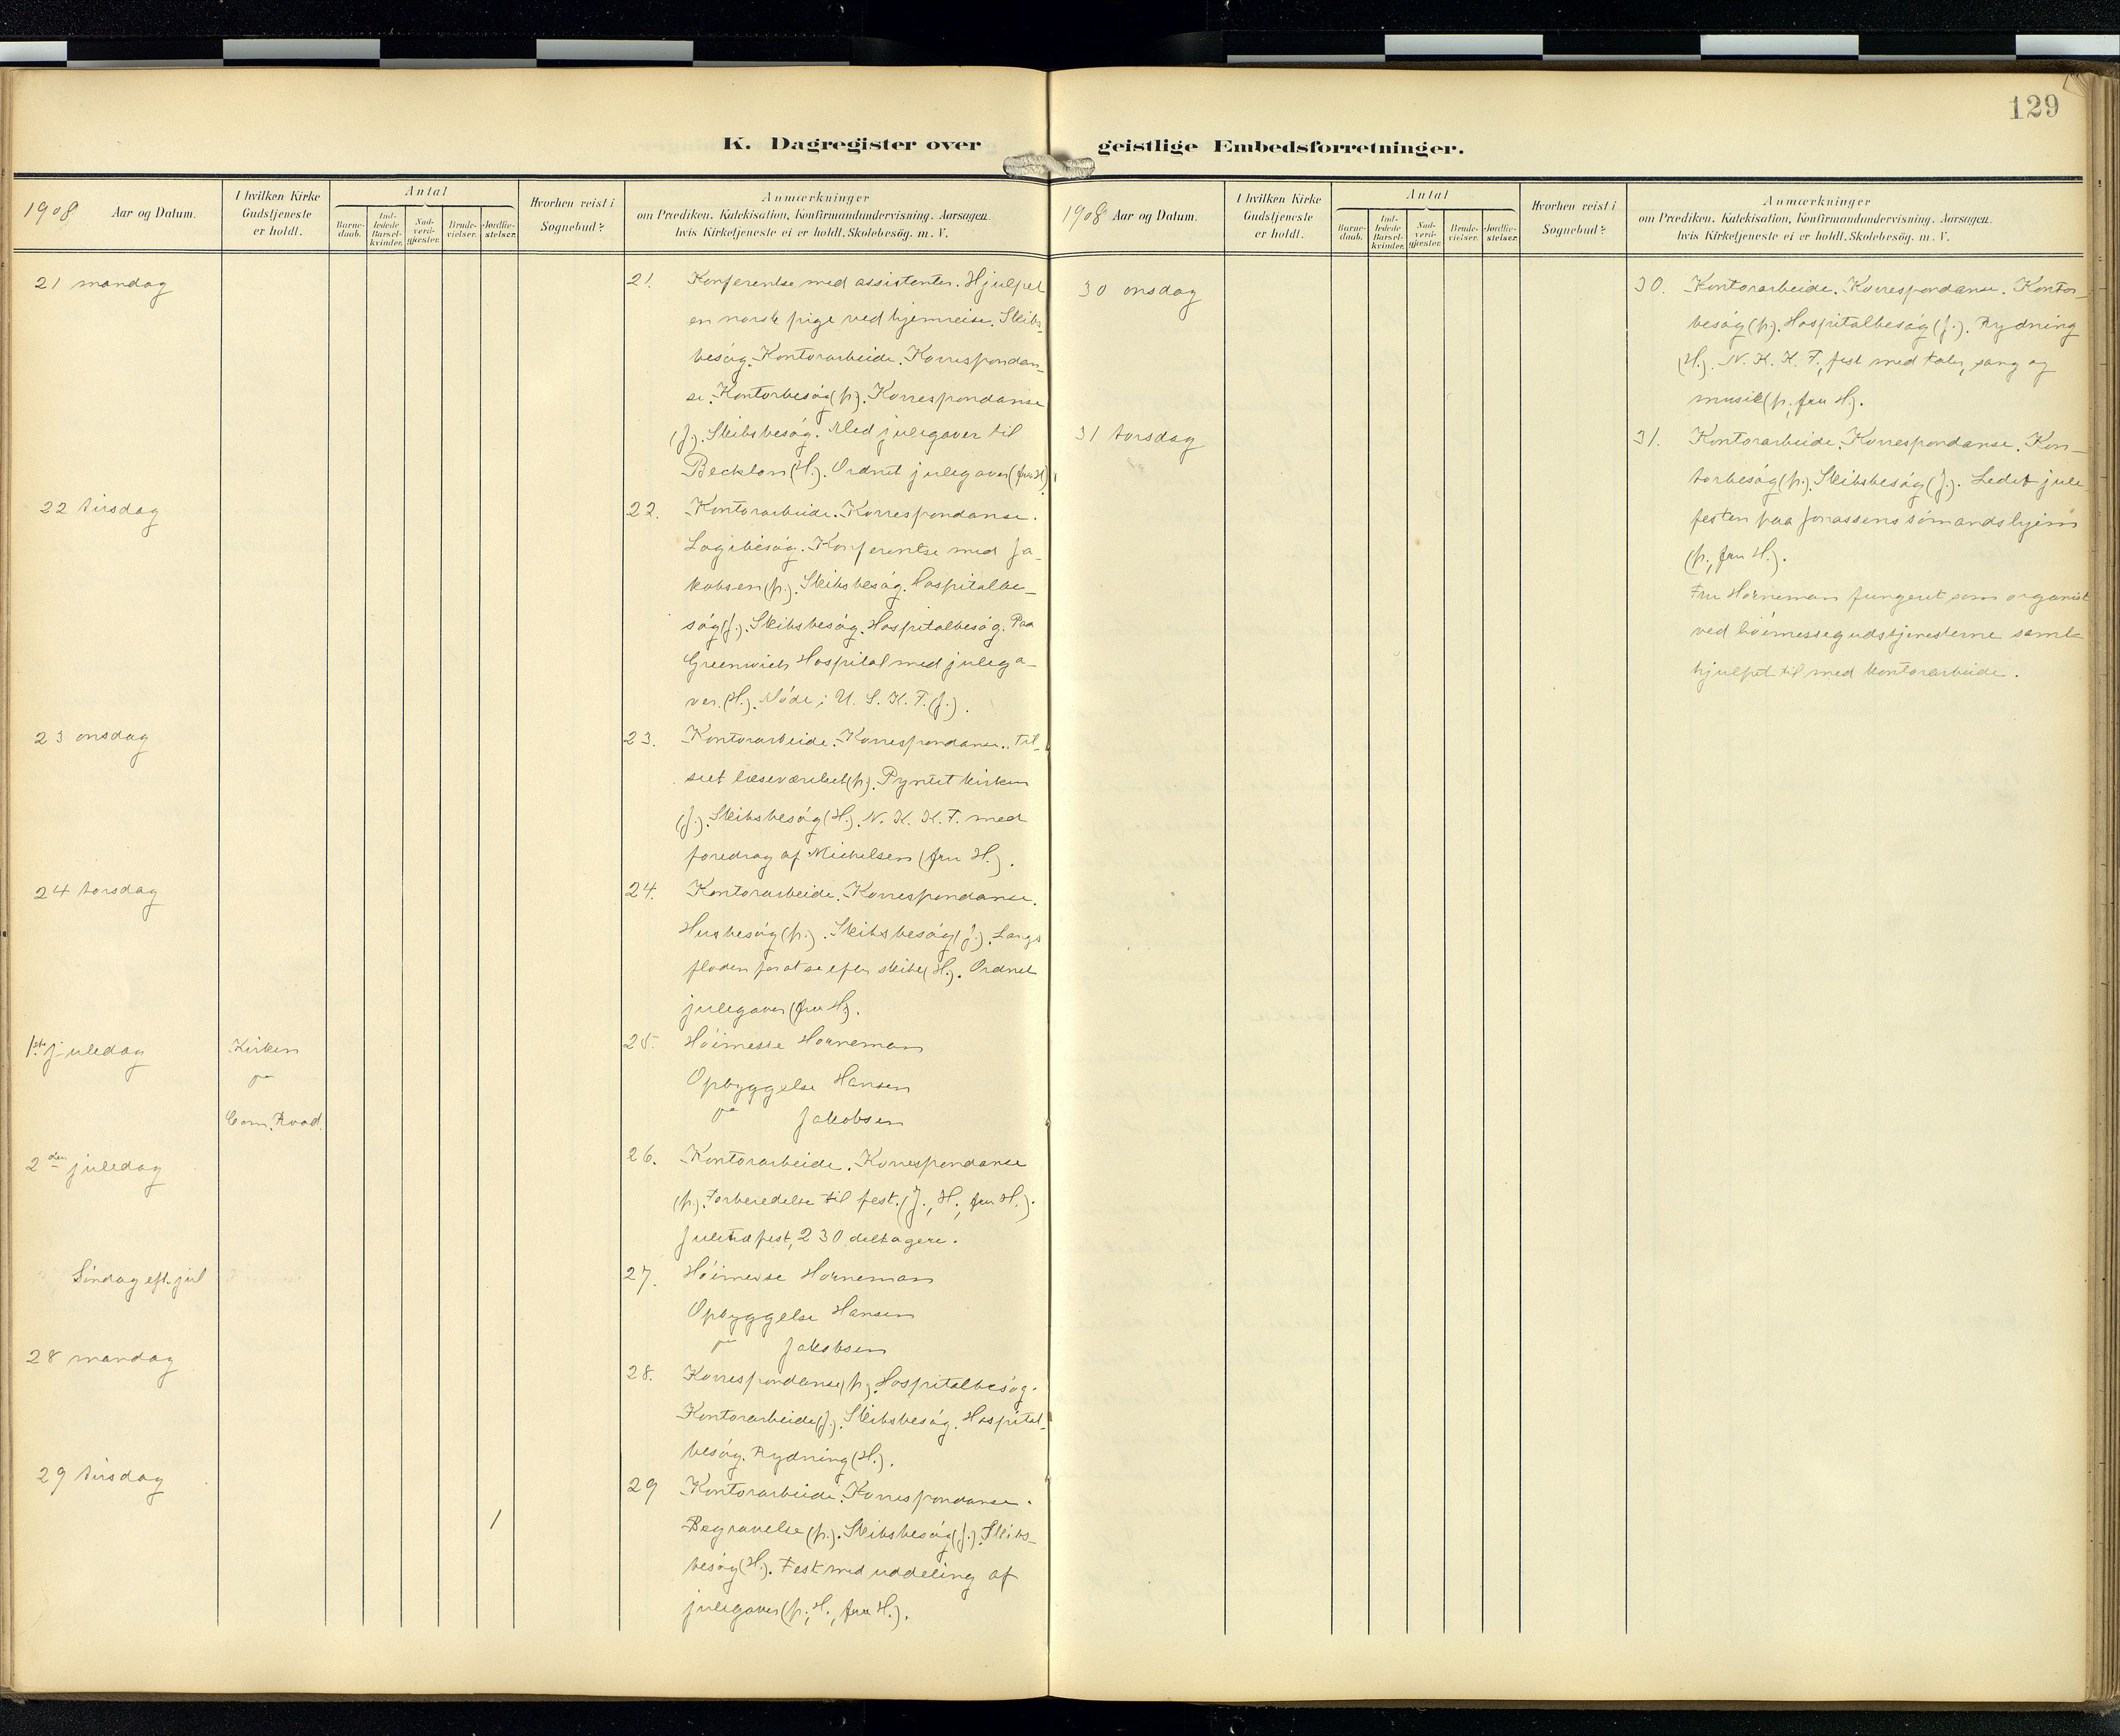 129
K. Dagregister over geistlige Embedsforretninger.
1908 Aar og Datum.
I hvilken Kirke Gudstjeneste er holdt.
Antal
Barne-daab.
Ind-ledede Barsel-kvinder.
Nad-verd-gjester.
Brude-vielser.
Jordfæ-stelser.
Hvorhen reist i Sognebud?
Anmærkninger
om Prædiken, Katekisation, Konfirmandundervisning, Aarsagen,
hvis Kirketjeneste ei er holdt, Skolebesøg, m. V.
21 mandag
21. Konferentse med assistenter. Hjulpet
en norsk pige ved hjemreise. Skibs-
besøg. Kontorarbeide. Korrespondan-
se. Kontorbesøg (p.). Korrespondanse
(J.). Skibsbesøg. Med julegaver til
Beckton (H.). Ordnet julegaver (fru H.)
22 tirsdag
22. Kontorarbeide. Korrespondanse.
Logibesøg. Konferentse med Ja-
kobsen (p.). Skibsbesøg. Hospitalbe-
søg (J.). Skibsbesøg. Hospitalbesøg. Paa
Greenwich Hospital med julega-
ver. (H.). Møde i U. S. K. F. (J.).
23 onsdag
23. Kontorarbeide. Korrespondanse. Til-
seet læseværelset (p.). Pyntet kirken
(J.). Skibsbesøg (H.). N. K. K. F. med
foredrag af Michelsen (fru H.).
24 torsdag
24. Kontorarbeide. Korrespondanse.
Husbesøg (p.). Skibsbesøg (J.). Langs
floden for at se efter skibe (H.). Ordnet
julegaver (fru H.).
1ste juledag
Kirken
Com. Road.
25. Høimesse Horneman
Opbyggelse Hansen
Jakobsen
2den juledag
26. Kontorarbeide. Korrespondanse
(p.). Forberedelse til fest. (J., H., fru H.).
Juletræfest, 230 deltagere.
Søndag eft. jul
27. Høimesse Horneman
Opbyggelse Hansen
Jakobsen
28 mandag
28. Korrespondanse (p.). Hospitalbesøg.
Kontorarbeide (J.). Skibsbesøg. Hospital-
besøg. Rydning (H.).
29 tirsdag
1
29 Kontorarbeide. Korrespondanse.
Begravelse (p.). Skibsbesøg (J.). Skibs-
besøg (H.). Fest med uddeling af
julegaver (p., H., fru H.).
1908 Aar og Datum.
I hvilken Kirke Gudstjeneste er holdt.
Antal
Barne-daab.
Ind-ledede Barsel-kvinder.
Nad-verd-gjester.
Brude-vielser.
Jordfæ-stelser.
Hvorhen reist i Sognebud?
Anmærkninger
om Prædiken, Katekisation, Konfirmandundervisning, Aarsagen,
hvis Kirketjeneste ei er holdt, Skolebesøg, m. V.
30 onsdag
30. Kontorarbeide. Korrespondanse. Kontor-
besøg (p.). Hospitalbesøg (J.). Rydning
(H.). N. K. K. F., fest med taler, sang og
musik (p., fru H.).
31 torsdag
31. Kontorarbeide. Korrespondanse. Kon-
torbesøg (p.). Skibsbesøg (J.). Ledet jule
festen paa Jonassens sømandshjem
(p., fru H.).
Fru Horneman fungeret som organist
ved høimessegudstjenesterne samt
hjulpet til med kontorarbeide.